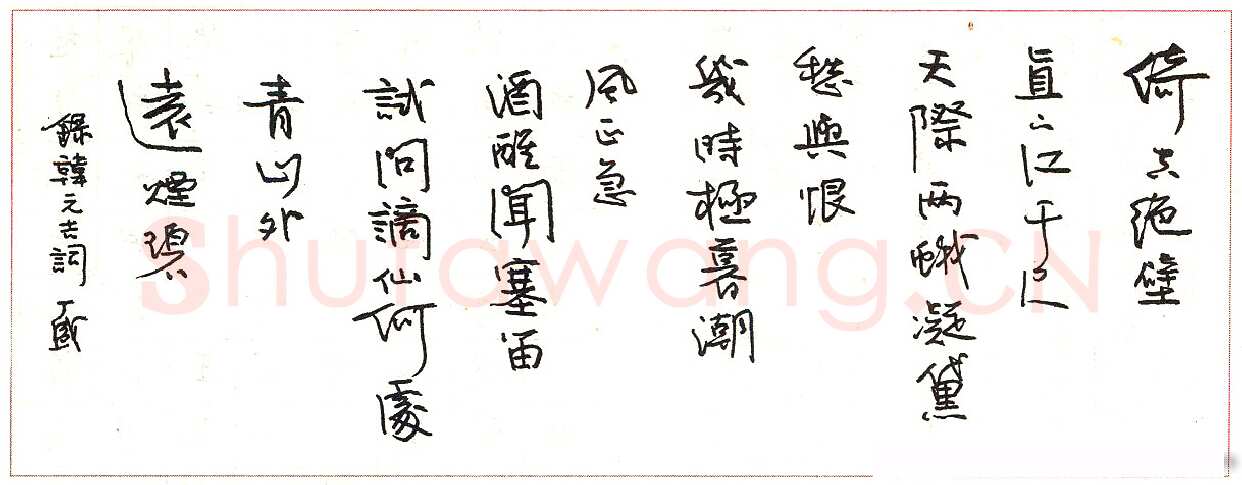 倚天絕壁
直下江千尺
天際两蛾凝黛
愁與恨
幾時極暮潮
風正急
酒醒聞塞笛
試問謫仙何處
青山外
遠煙碧
錄韓元吉詞
Shufawang.CN